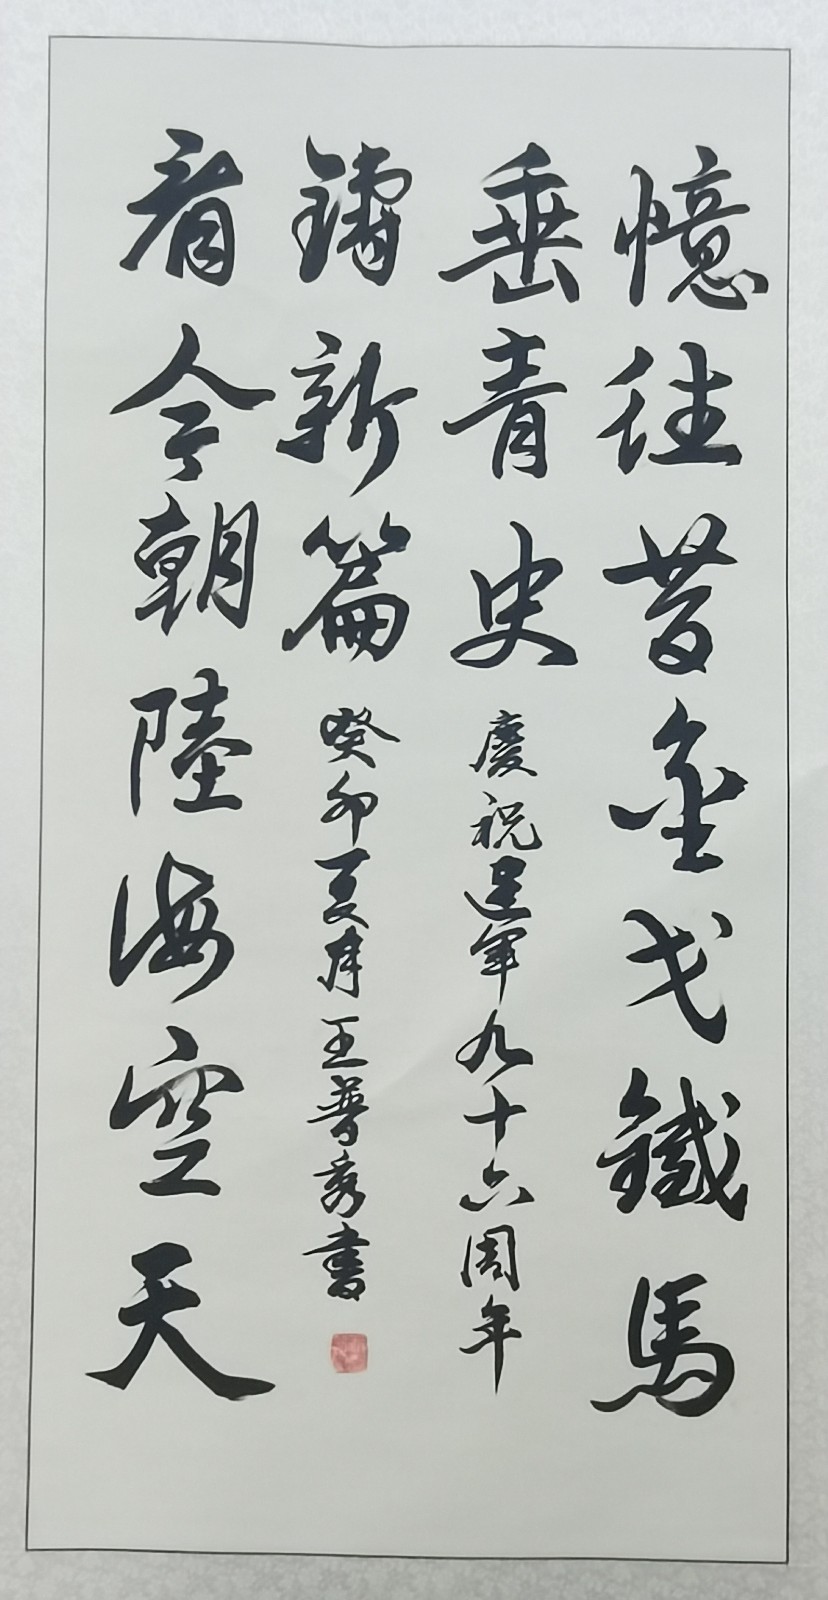 憶往昔金戈鐵馬
垂青史
慶祝建軍九十六周年
看今朝陸海空天
鑄新篇
癸卯夏月王普秀書